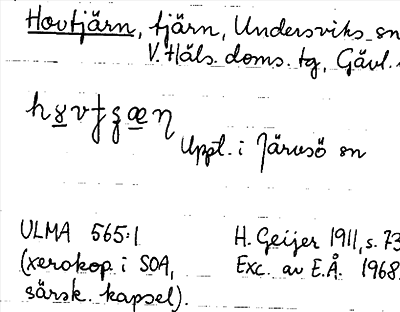 Hovtjärn, tjärn, Undersviks sn
V. Häls. doms. tg, Gävl.
Uppl. i Järvsö sn
ULMA 565:1
H. Geijer 1911, s. 73
(xerokop. i SOA,
Exc. av E.Å. 1968
särsk. kapsel).